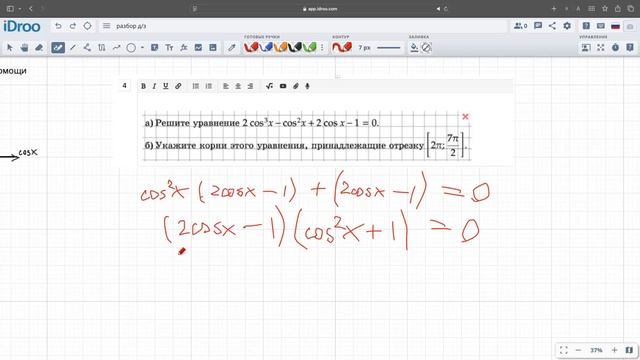 app.idroo.com
iDroo
разбор д/з
ГОТОВЫЕ РУЧКИ
КОНТУР
7 px
ДОСКА
УПРАВЛЕНИЕ
мощи
4 B I U S
а) Решите уравнение 2 cos³x − cos²x + 2 cos x − 1 = 0.
б) Укажите корни этого уравнения, принадлежащие отрезку [2π; 7π/2].
cosx
cos²x (2cosx − 1) + (2cosx − 1) = 0
(2cosx − 1)(cos²x + 1) = 0
37%